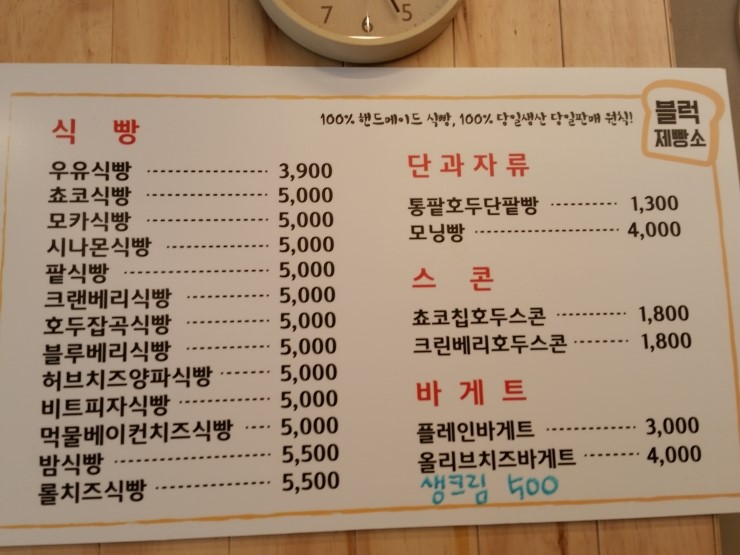 7 6 5
블럭
제빵소
100% 핸드메이드 식빵, 100% 당일생산 당일판매 원칙!
식 빵
우유식빵 3,900
쵸코식빵 5,000
모카식빵 5,000
시나몬식빵 5,000
팥식빵 5,000
크랜베리식빵 5,000
호두잡곡식빵 5,000
블루베리식빵 5,000
허브치즈양파식빵 5,000
비트피자식빵 5,000
먹물베이컨치즈식빵 5,000
밤식빵 5,500
롤치즈식빵 5,500
단과자류
통팥호두단팥빵 1,300
모닝빵 4,000
스 콘
쵸코칩호두스콘 1,800
크린베리호두스콘 1,800
바게트
플레인바게트 3,000
올리브치즈바게트 4,000
생크림 500